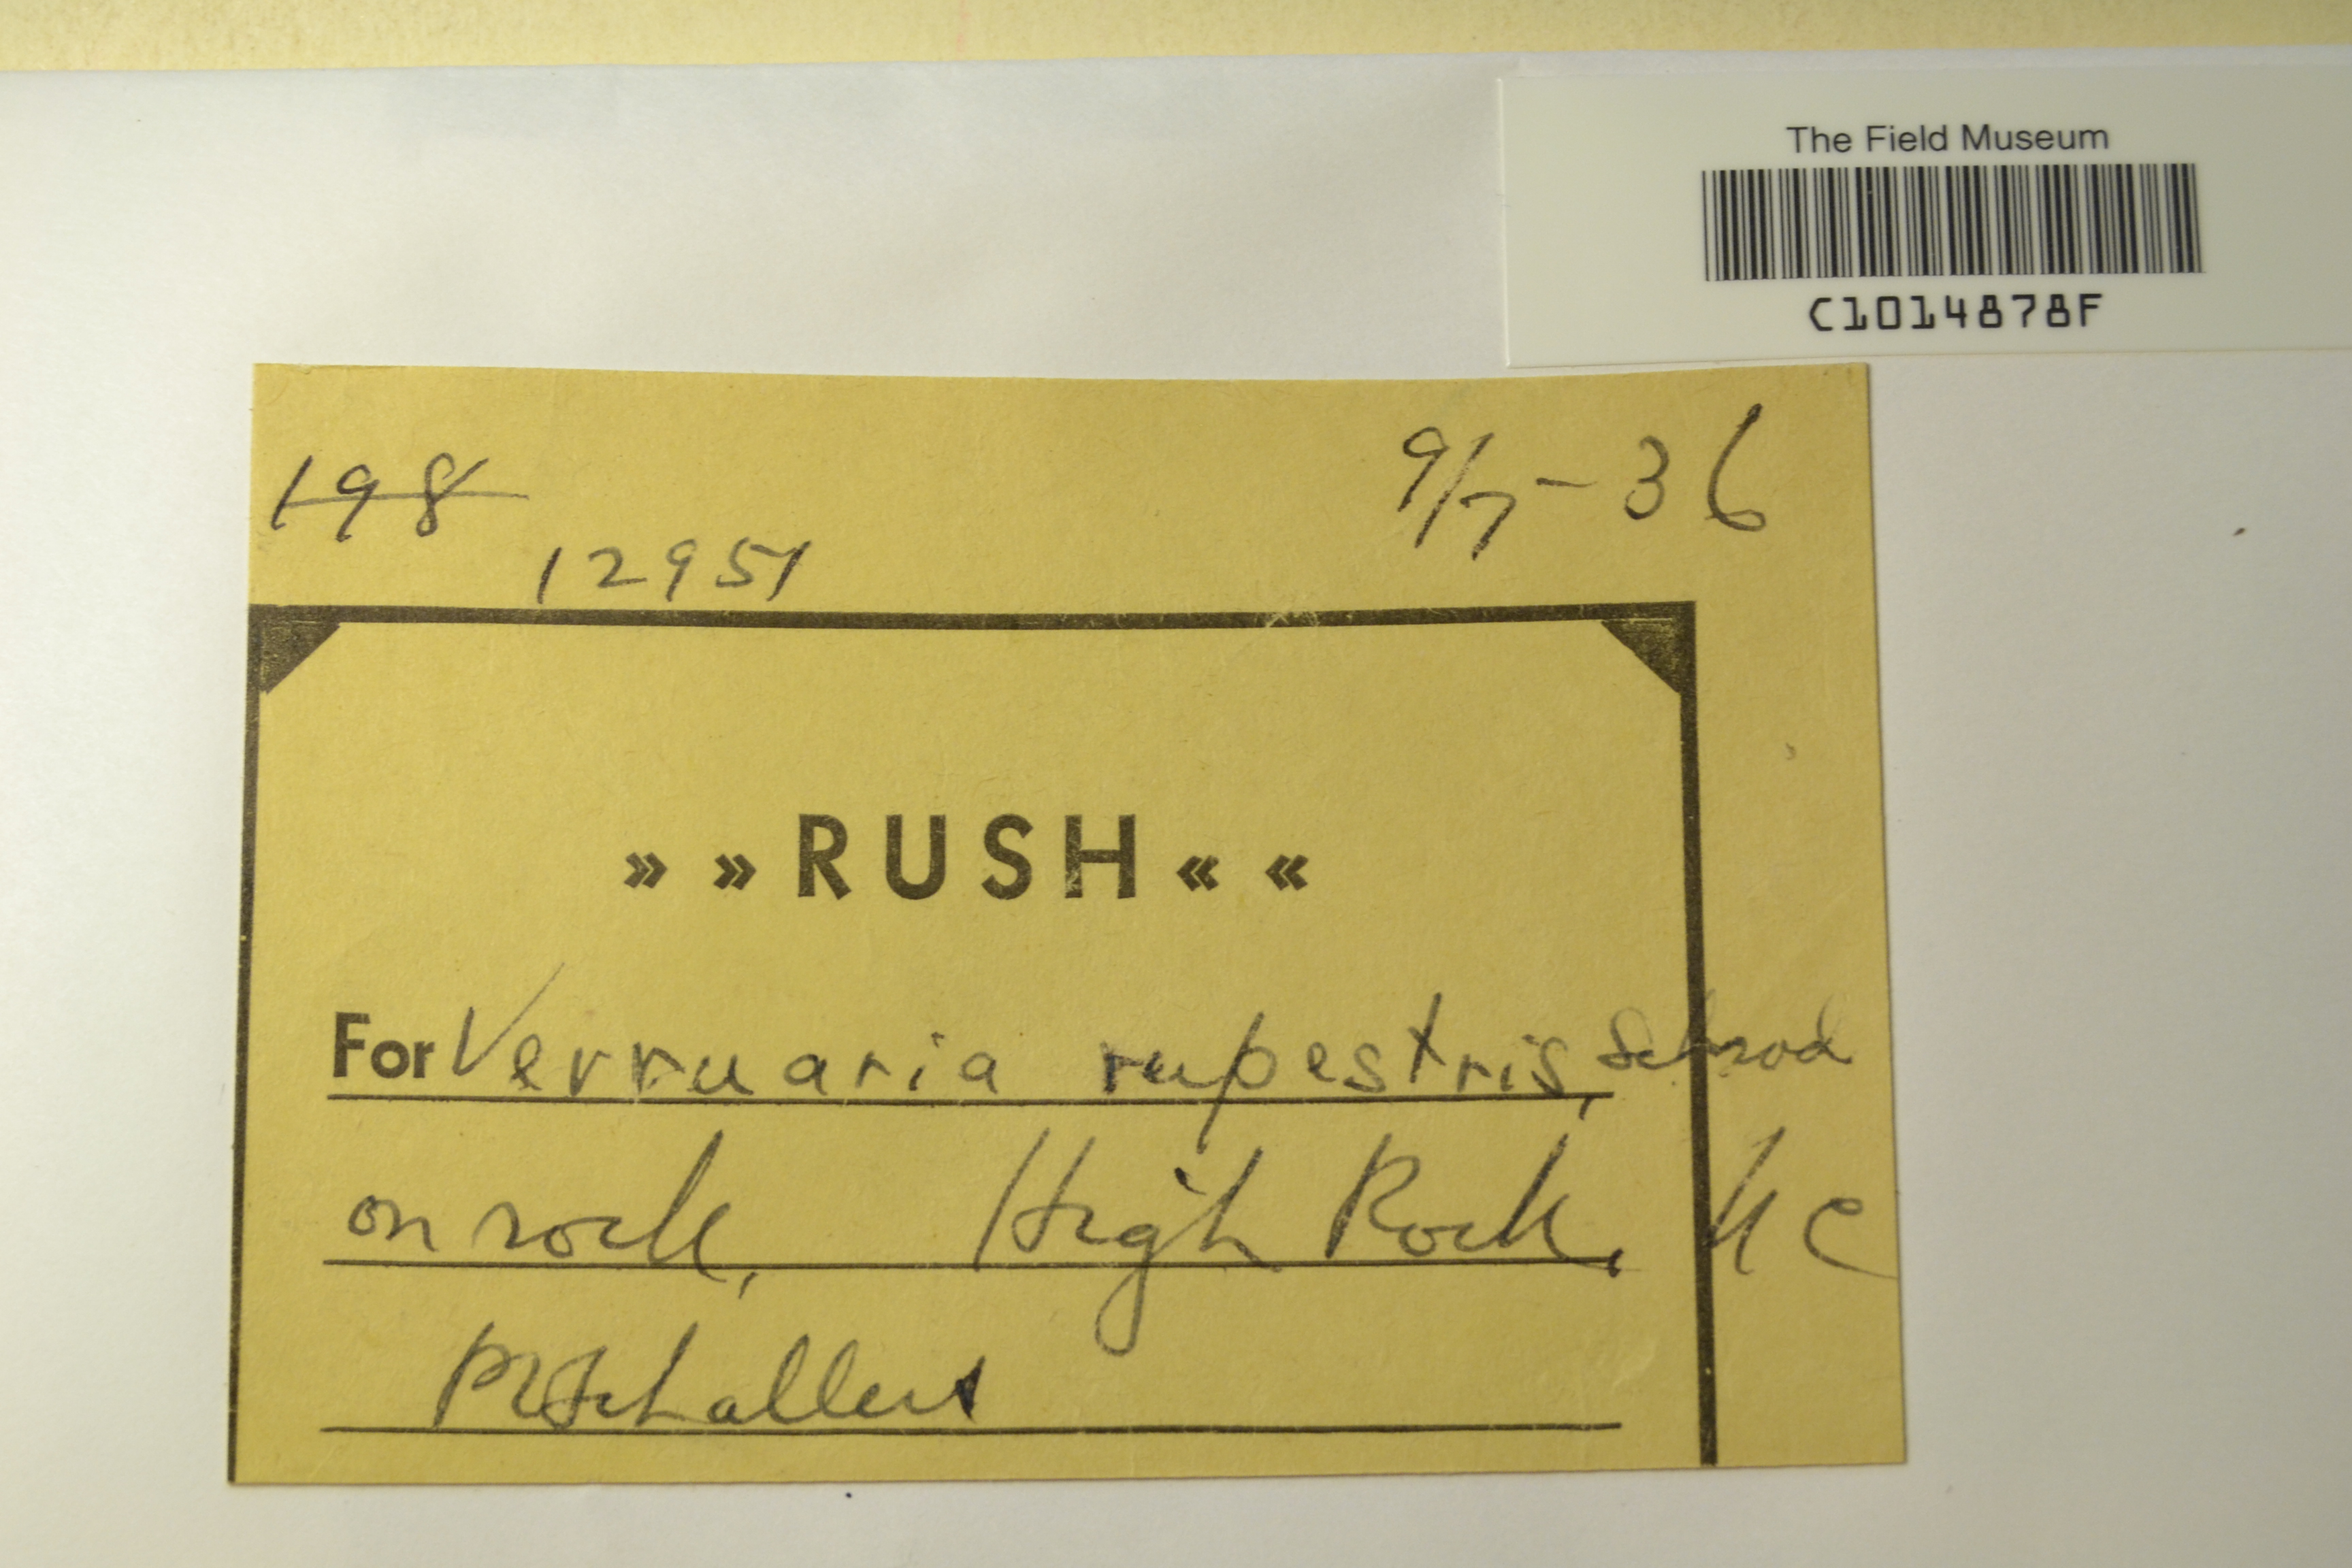 The Field Museum
C1014878F
198
9/7-36
12951
» » RUSH « «
For Verruaria rupestris, Schrad
on rock, High Rock, NC
PO Schallert